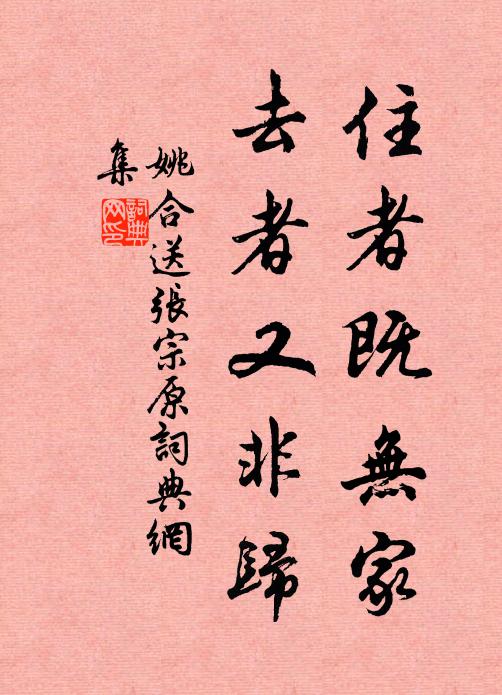 住者既無家
去者又非歸
姚合送張宗原詞典網
集
詞典網印